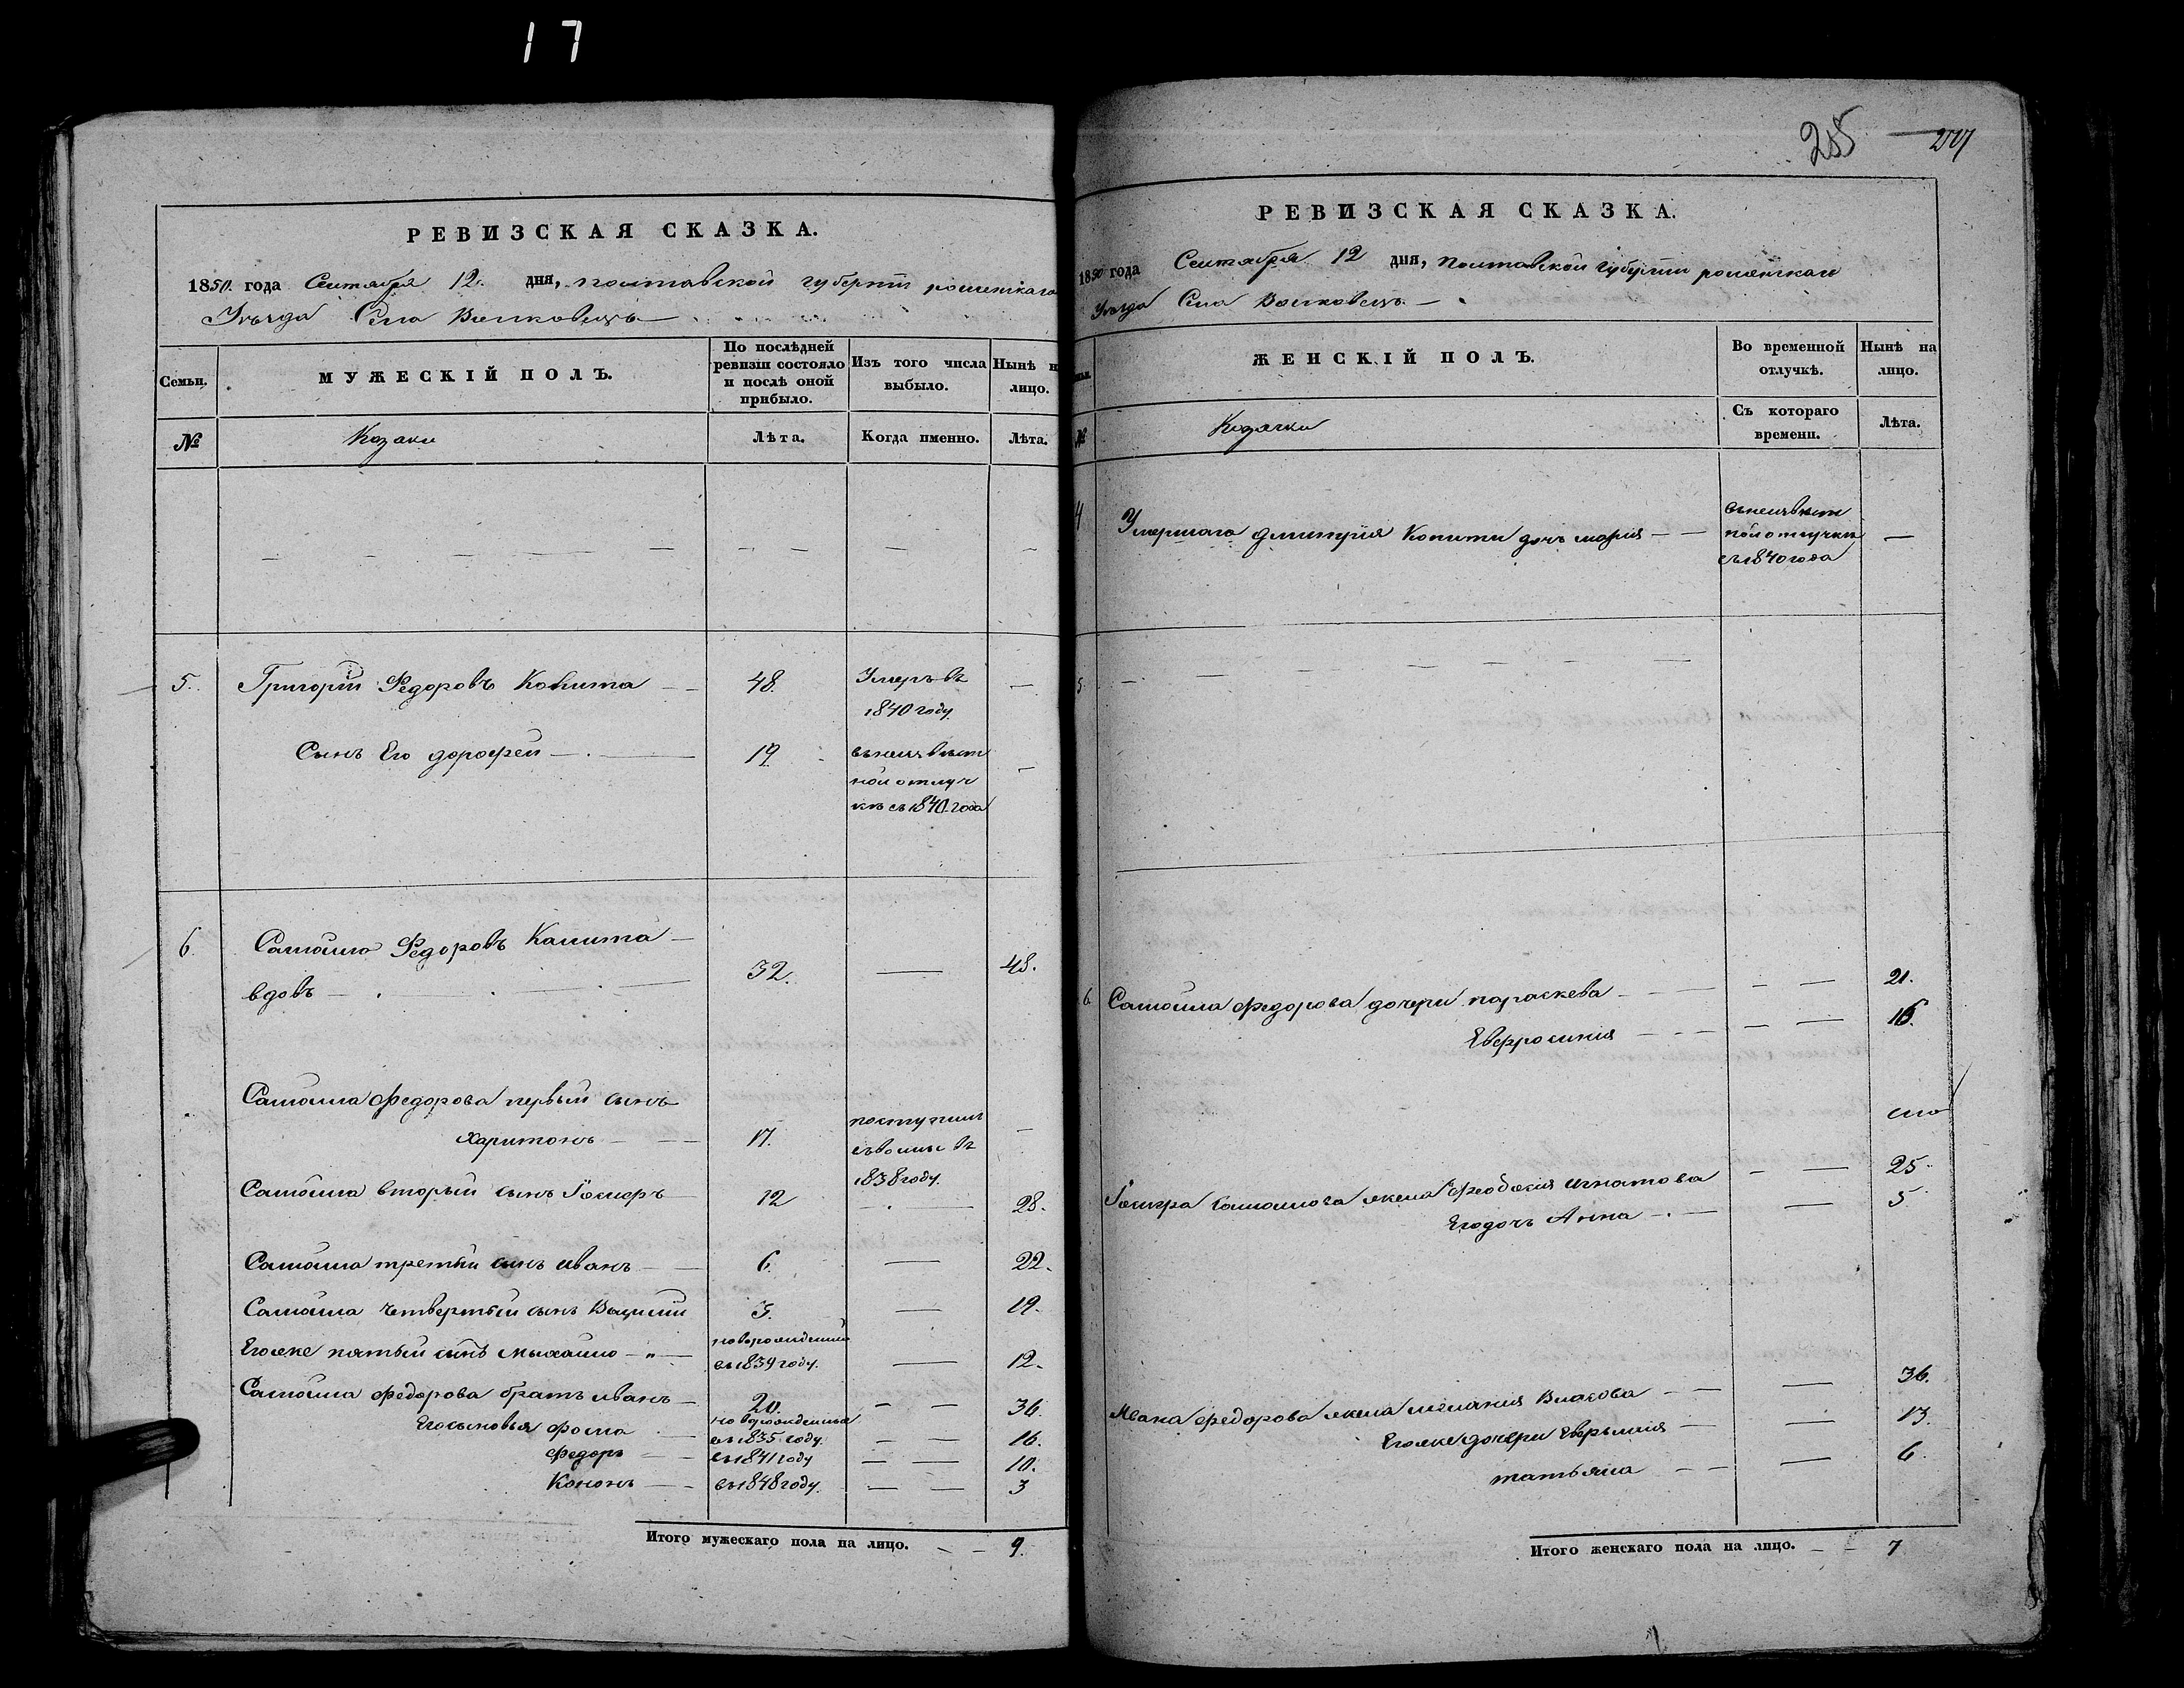 17
РЕВИЗСКАЯ СКАЗКА.
1850. года Сентября 12. дня, полтавской губернїи роменскаго
Уѣзда Села Волковецъ
Семьи.
МУЖЕСКІЙ ПОЛЪ.
По послѣдней ревизіи состояло и послѣ оной прибыло.
Изъ того числа выбыло.
Нынѣ н лицо.
№
Козаки
Лѣта.
Когда именно.
Лѣта.
5. Григорїй Федоровъ Копита 48. Умеръ въ
1840 году
Сынъ Его дорофей 19 въ неизвѣст
ной отлуч
кѣ съ 1840 года
6. Самойло Федоровъ Капита
вдовъ 32. 48.
Самойла Федорова первый сынъ
Харитонъ 17. поступилъ
въ 1838 году.
Самойла вторый сынъ 12 28.
Самойла третїй сынъ иванъ 6. 22.
Самойла четвертый сынъ Василїй 3. 19.
Егоже пятый сынъ Михайло новорожденный
въ 1839 году. 12.
Самойла Федорова братъ иванъ 20. 36.
Его сыновья фома новорожденные
въ 1835 году. 16.
Федоръ въ 1841 году 10.
Кононъ въ 1848 году. 3
Итого мужескаго пола на лицо. 9.
285
РЕВИЗСКАЯ СКАЗКА.
1850 года Сентября 12 дня, полтавской губернїи роменскаго
Уѣзда Села Волковецъ
ЖЕНСКІЙ ПОЛЪ.
Во временной отлучкѣ.
Нынѣ на лицо.
№
Козачки
Съ котораго времени.
Лѣта.
4 Умершаго дмитрїя Копити дочь марїя въ неизвѣст
ной отлучкѣ
съ 1840 года
5.
6. Самойла Федорова дочери параскева 21.
Евфросинїя 16.
Самойлова жена феодосїя игнатова 25.
Его дочь Анна 5.
Ивана Федорова жена меланїя Власова 36.
Егоже дочери 13.
татьяна 6.
Итого женскаго пола на лицо. 7